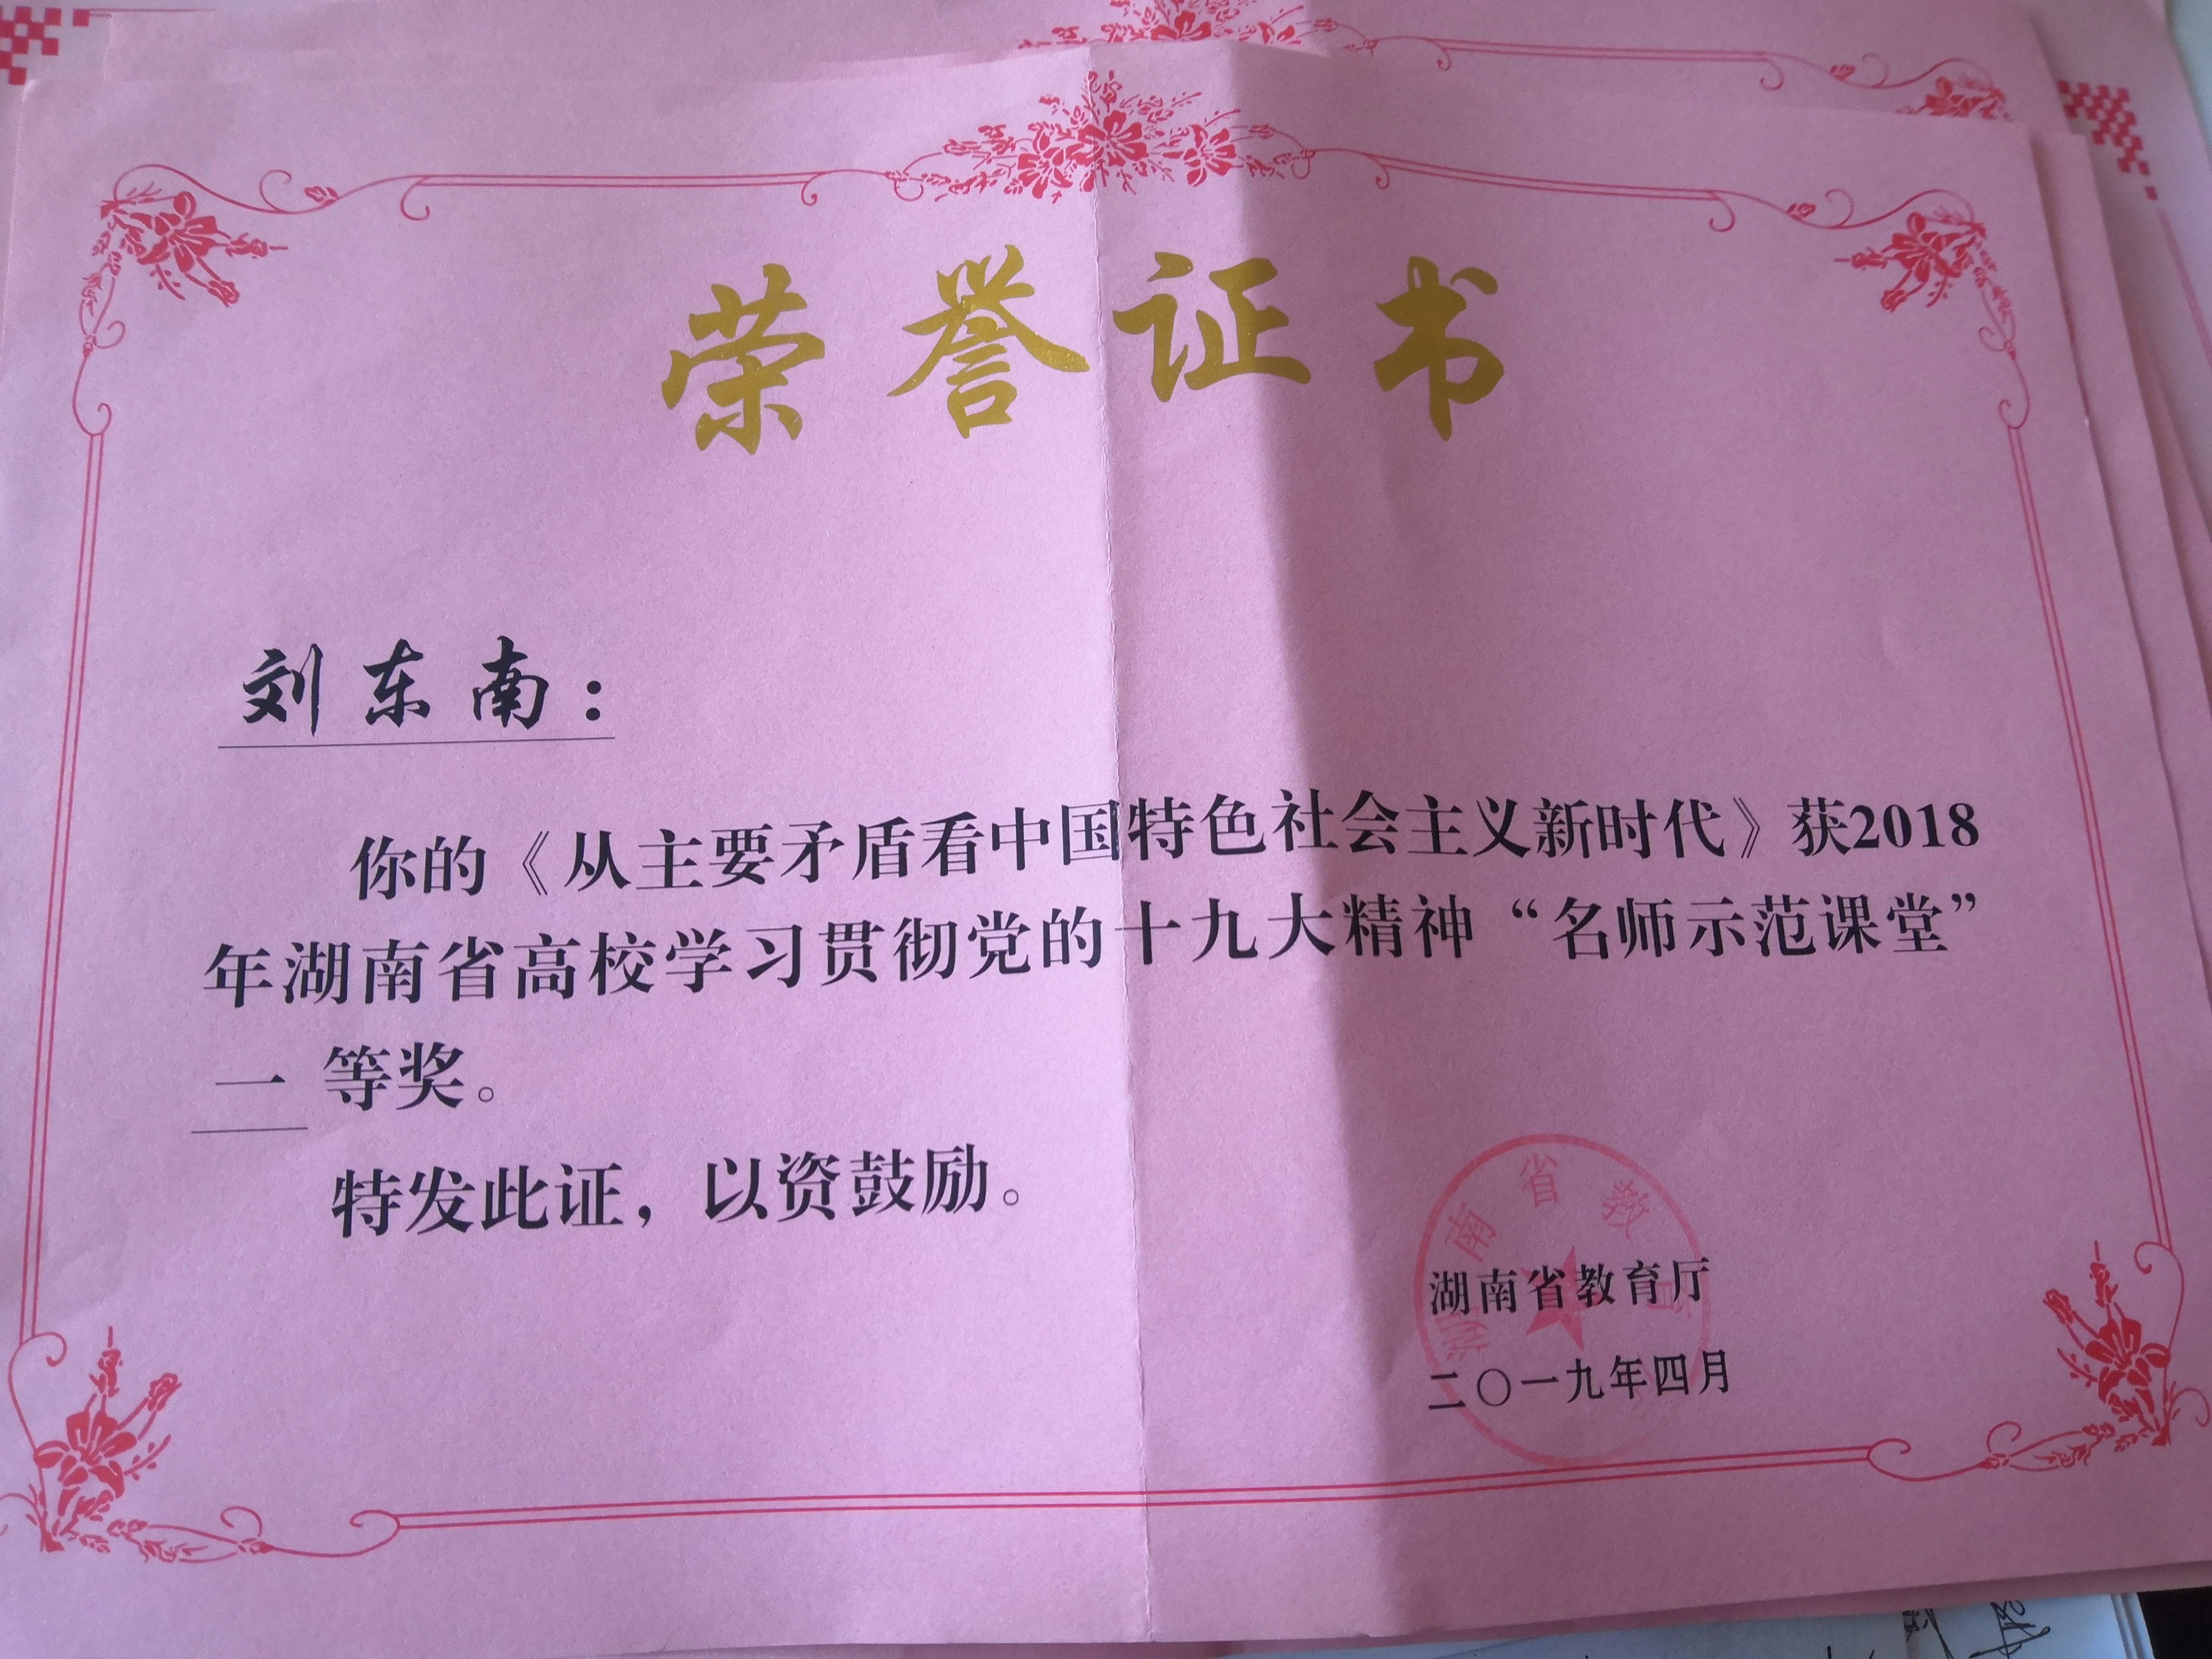 荣誉证书
刘东南：
你的《从主要矛盾看中国特色社会主义新时代》获2018
年湖南省高校学习贯彻党的十九大精神“名师示范课堂”
一等奖。
特发此证，以资鼓励。
湖南省教
湖南省教育厅
二〇一九年四月